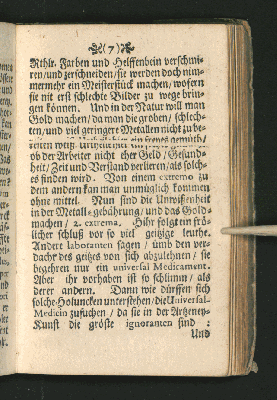 (7)
Rthlr. Farben und Helffenbein verschmi-
ren/und zerschneiden/sie werden doch nim-
mermehr ein Meisterstück machen/wofern
sie nit erst schlechte Bilder zu wege brin-
gen können. Und in der Natur will man
Gold machen/da man die groben/schlech-
ten/und viel geringere Metallen nicht zube-
ob der Arbeiter nicht eher Geld/Gesund-
heit/Zeit und Verstand verlieren/als solch-
es finden wird. Von einem extremo zu
dem andern kan man unmüglich kommen
ohne mittel. Nun sind die Unwissenheit
in der Metall-gebährung/und das Gold-
machen/2. extrema. Hihr folget ein frö-
licher schluß vor so viel geitzige leuthe.
Andere laboranten sagen/ümb den ver-
dacht des geitzes von sich abzulehnen/sie
begehren nur ein universal Medicament.
Aber ihr vorhaben ist so schlimm/als
derer andern. Dann wie dürffen sich
solche Holuncken unterstehen/die Universal-
Medicin zusuchen/da sie in der Artzeney-
Kunst die gröste ignoranten sind :
Und